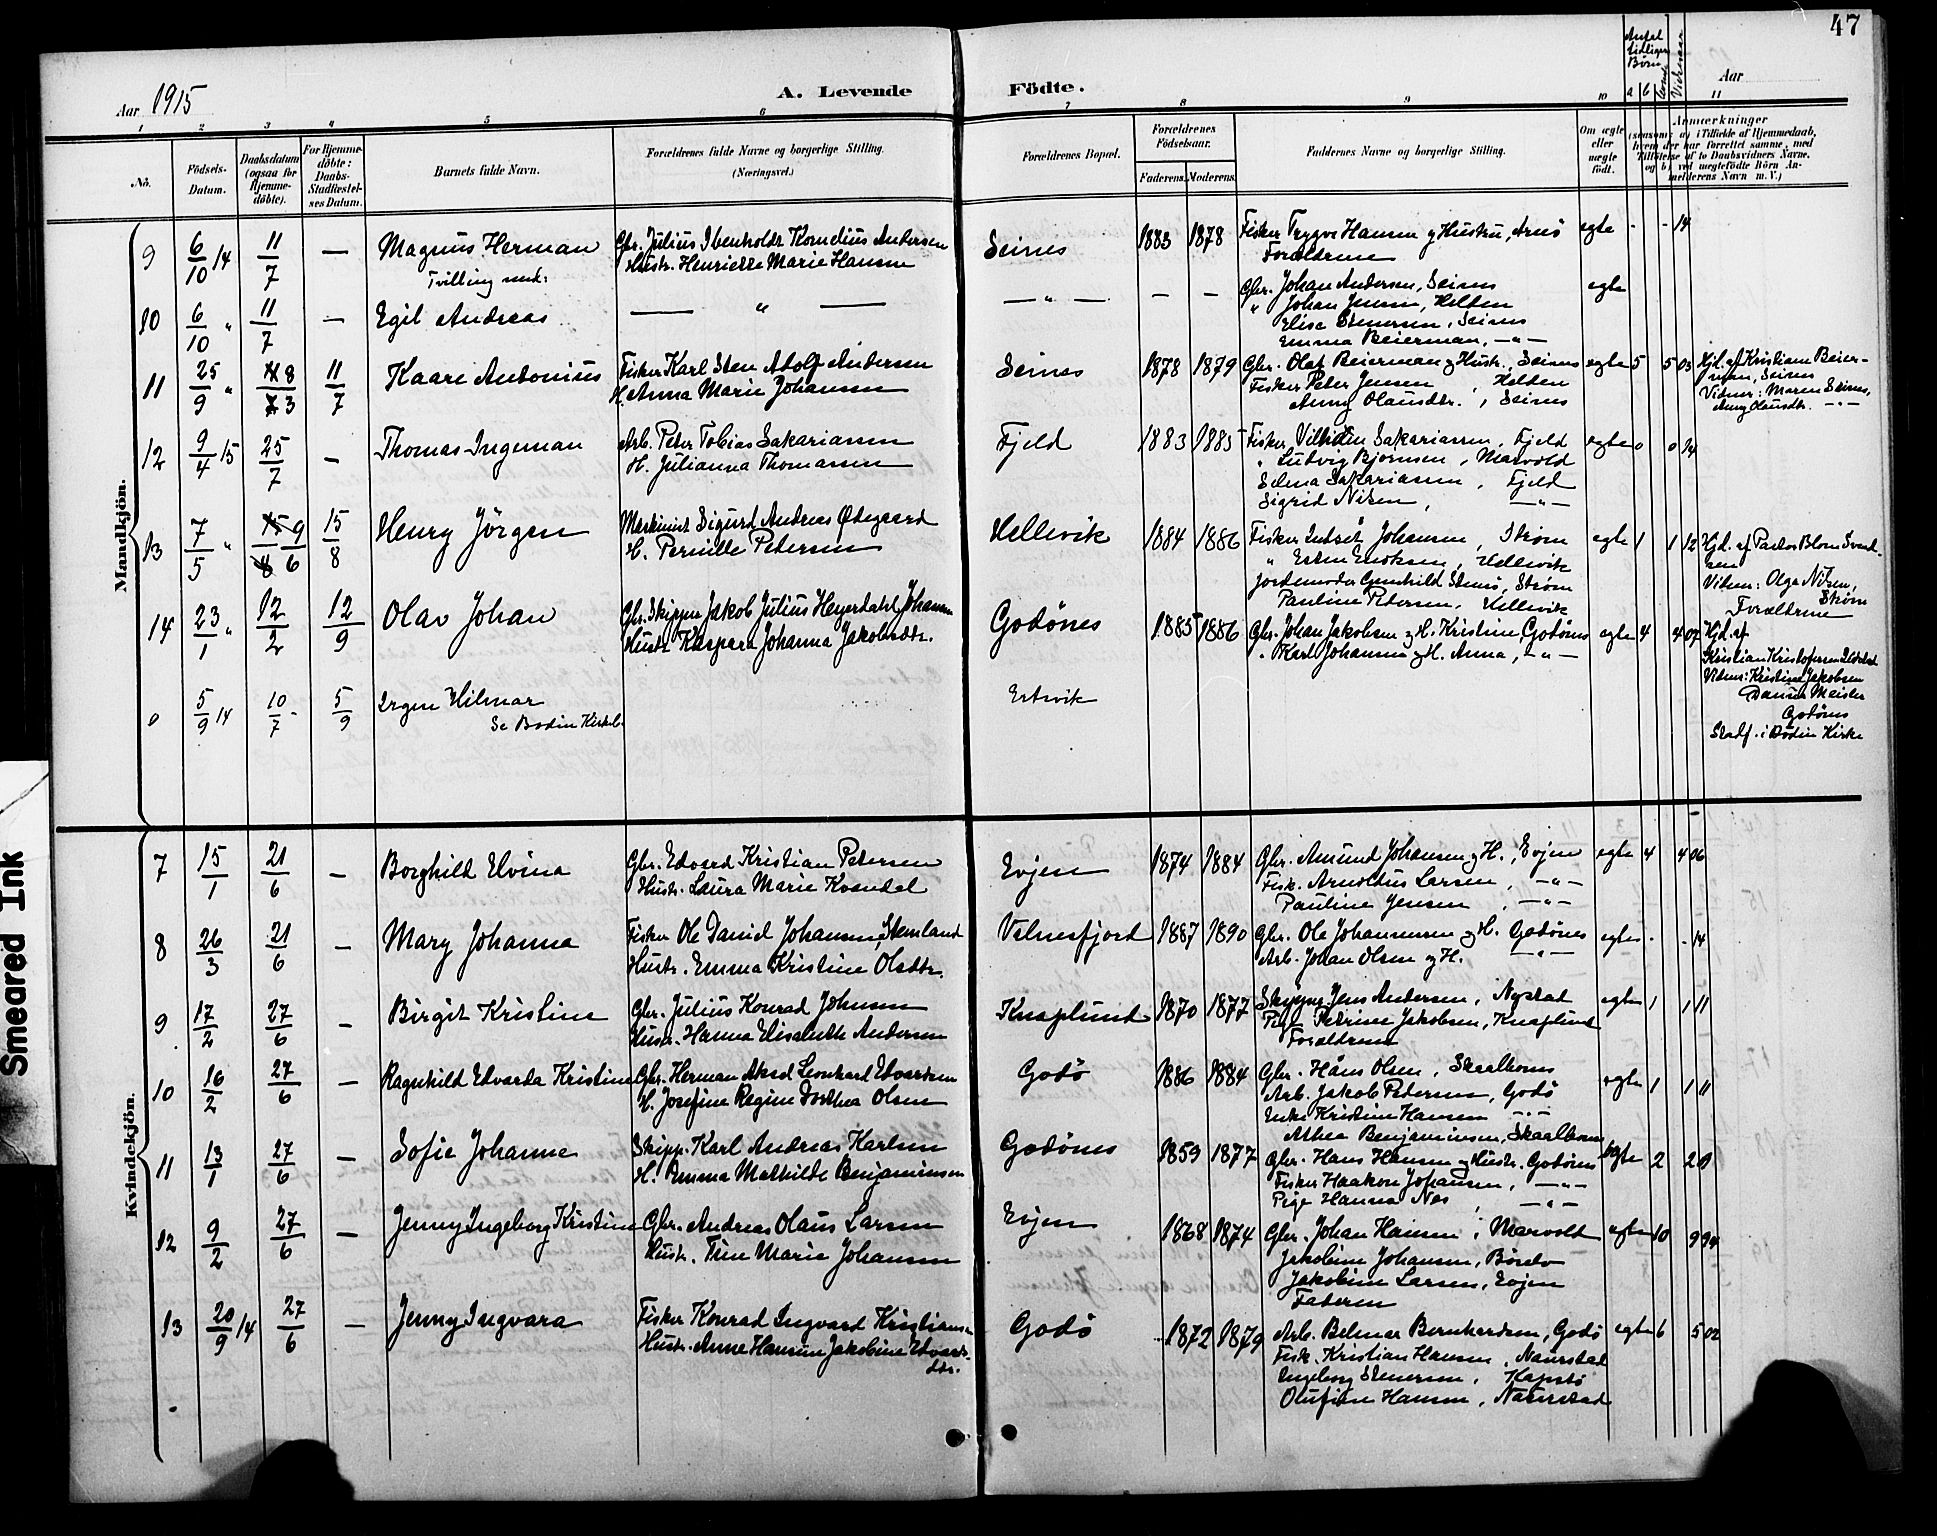 47
Aar 1915
A. Levende Födte.
Aar
Antal tidligere Børn
a b
1 2 3 4 5 6 7 8 9 10 11
No.
Födsels-Datum.
Daabsdatum (ogsaa for Hjemmedöbte).
For Hjemmedöbte: Daabs-Stadfæstelses Datum.
Barnets fulde Navn.
Forældrenes fulde Navne og borgerlige Stilling. (Næringsvei.)
Forældrenes Bopæl.
Forældrenes Födselsaar.
Faderens. Moderens.
Faddernes Navne og borgerlige Stilling.
Om ægte eller uægte födt.
Anmærkninger
(saasom: a) i Tilfælde af Hjemmedaab,
hvem der har forrettet samme, med
Tilföielse af to Daabsvidners Navne,
og b) ved uægtefödte Börn An-
melderens Navn m. V.)
Mandkjön.
9 6/10 14 11/7 — Magnus Herman
Tvilling med:
Gbr. Julius Ibenholdt Kornelius Andersen
Hustr. Henriette Marie Hansen
Seines 1883 1878
Fisker Trygve Hansen og Hustru, Arnø
Forældrene
egte - - 14
10 6/10 " 11/7 — Egil Andreas
— " — — " — — —
Gbr. Johan Andersen, Seines
" Johan Jensen, Helden
Elise Stenersen, Seines
Emma Beierman, —"—
egte
11 25/9 " 8/3 11/7 Kaare Antonius
Fisker Karl Sten Adolf Andersen
H. Anna Marie Johansen
Seines 1878 1879
Gbr. Olaf Beierman og Hustr., Seines
Fisker Peter Jensen, Helden
Anny Olausdtr., Seines
egte 5 5 03
Hjd. af Kristiane Beier-
man, Seines
Vidner: Maren Seines,
Anny Olausdtr. —"—
12 9/4 15 25/7 — Thomas Ingeman
Arb. Peter Tobias Sakariassen
H. Julianna Thomassen
Fjeld 1883 1885
Fisker Vilhelm Sakariassen, Fjeld
" Ludvig Bjørnsen, Marvold
Selma Sakariassen, Fjeld
Sigrid Nilsen, —"—
egte 0 0 14
13 7/5 " 9/6 15/8 Henry Jörgen
Maskinist Sigurd Andreas Ødegaard
H. Pernille Petersen
Hellevik 1884 1886
Fisker Johansen, Strøm
" Eriksen, Hellevik
Jordemoder Gunhild Stenø, Strøm
Pauline Petersen, Hellevik
egte 1 1 12
Hjd. af Pastor Blom Svend-
sen
Vidner: Olga Nilsen,
Strøm
Forældrene
14 23/1 " 12/2 12/9 Olav Johan
Gbr. Skipper Jakob Julius Heyerdahl Johansen
Hustr. Kaspara Johanna Jakobsdtr.
Godønes 1885 1886
Gbr. Johan Jakobsen og H. Kristine, Godønes
" Karl Johansen og H. Anna, —"—
egte 4 4 07
Hjd. af
Kristian Kristofersen
Vidner: Kristine Jakobsen
Meisler
Godønes
Stadf. i Bodin Kirke
0 5/9 14 10/7 - 5/9 Hilmar
Se Bodin Kirkeb.
Ertsvik
Kvindekjön.
7 15/1 21/6 — Borghild Elvina
Gbr. Edvard Kristian Petersen
Hustr. Laura Marie Kvandal
Evjen 1874 1884
Gbr. Amund Johansen og H., Evjen
Fisk. Arnoldus Larsen, —"—
Pauline Jensen, —"—
egte 4 4 06
8 26/3 21/6 — Mary Johanna
Fisker Ole Daniel Johansen, Stemland
Hustr. Emma Kristine Olsdtr.
Valnesfjord 1887 1890
Gbr. Ole Johannessen og H. Godønes
Arb. Johan Olsen og H. —"—
egte - - 14
9 17/2 27/6 — Birgit Kristine
Gbr. Julius Konrad Johnsen
Hustr. Hanna Elisabeth Andersen
Knaplund 1870 1877
Skipper Jens Andersen, Nystad
Pige Petrine Jakobsen, Knaplund
Forældrene
egte 1 1 11
10 16/2 27/6 — Ragnhild Edvarda Kristine
Gbr. Herman Aksel Leonhard Edvardsen
H. Josefine Regine Dorthea Olsen
Godø 1886 1884
Gbr. Hans Olsen, Skaalbones
Arb. Jakob Petersen, Godø
Enke Kristine Hansen —"—
Athea Benjaminsen, Skaalbones
egte 1 1 11
11 13/1 27/6 — Sofie Johanne
Skipp. Karl Andreas Karlsen
H. Emma Mathilde Benjaminsen
Godønes 1859 1877
Gbr. Hans Hansen og Hustr. Godønes
Fisker Haakon Johansen, —"—
Pige Hanna Næs, —"—
egte 2 2
12 9/2 27/6 — Jenny Ingeborg Kristine
Gbr. Andreas Olaus Larsen
Hustr. Tine Marie Johansen
Evjen 1868 1874
Gbr. Johan Hansen, Marvold
Jakobine Johansen,
Jakobine Larsen, Evjen
Faderen
egte 10 9 94
13 20/9 14 27/6 — Jenny Ingvara
Fisker Konrad Ingvard Kristiansen
Hustr. Anne Hansine Jakobine Edvards-
dtr.
Godø 1872 1879
Arb. Belmar Bernhardsen, Godø
Fisk. Kristian Hansen, Naurstad
Ingeborg Stenersen, Kapstø
Olufine Hansen, Naurstad
egte 6 5 02
Smeared Ink